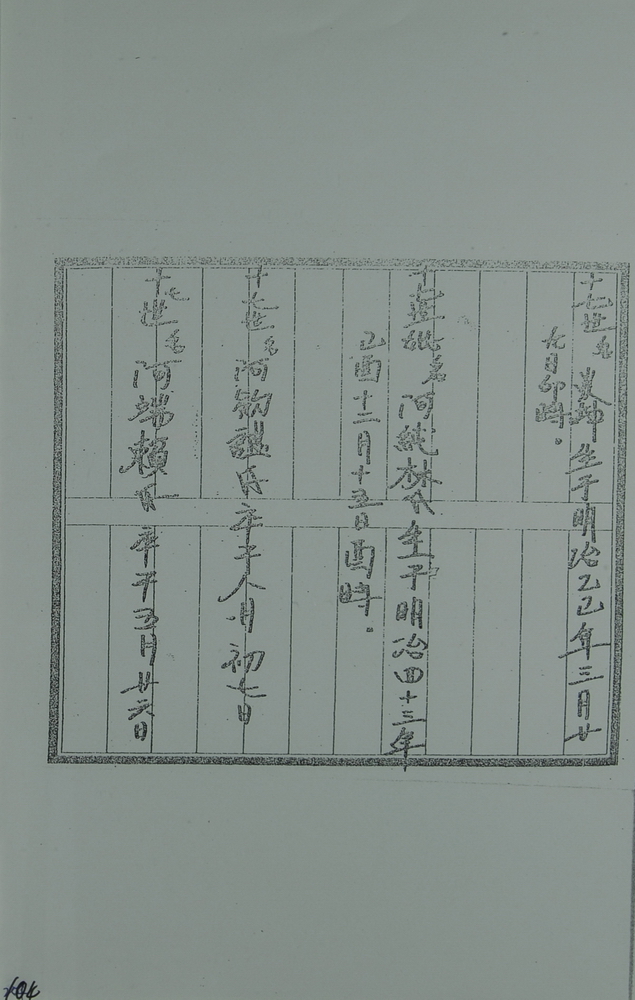 十七世名 坤生于明治乙巳年三月廿
九日卯時.
十七世 名阿純林氏生于明治四十三年
己酉十二月十五日酉時.
十七世名阿欽 氏卒于八月初七日
十七世名阿端賴氏卒于五月廿六日